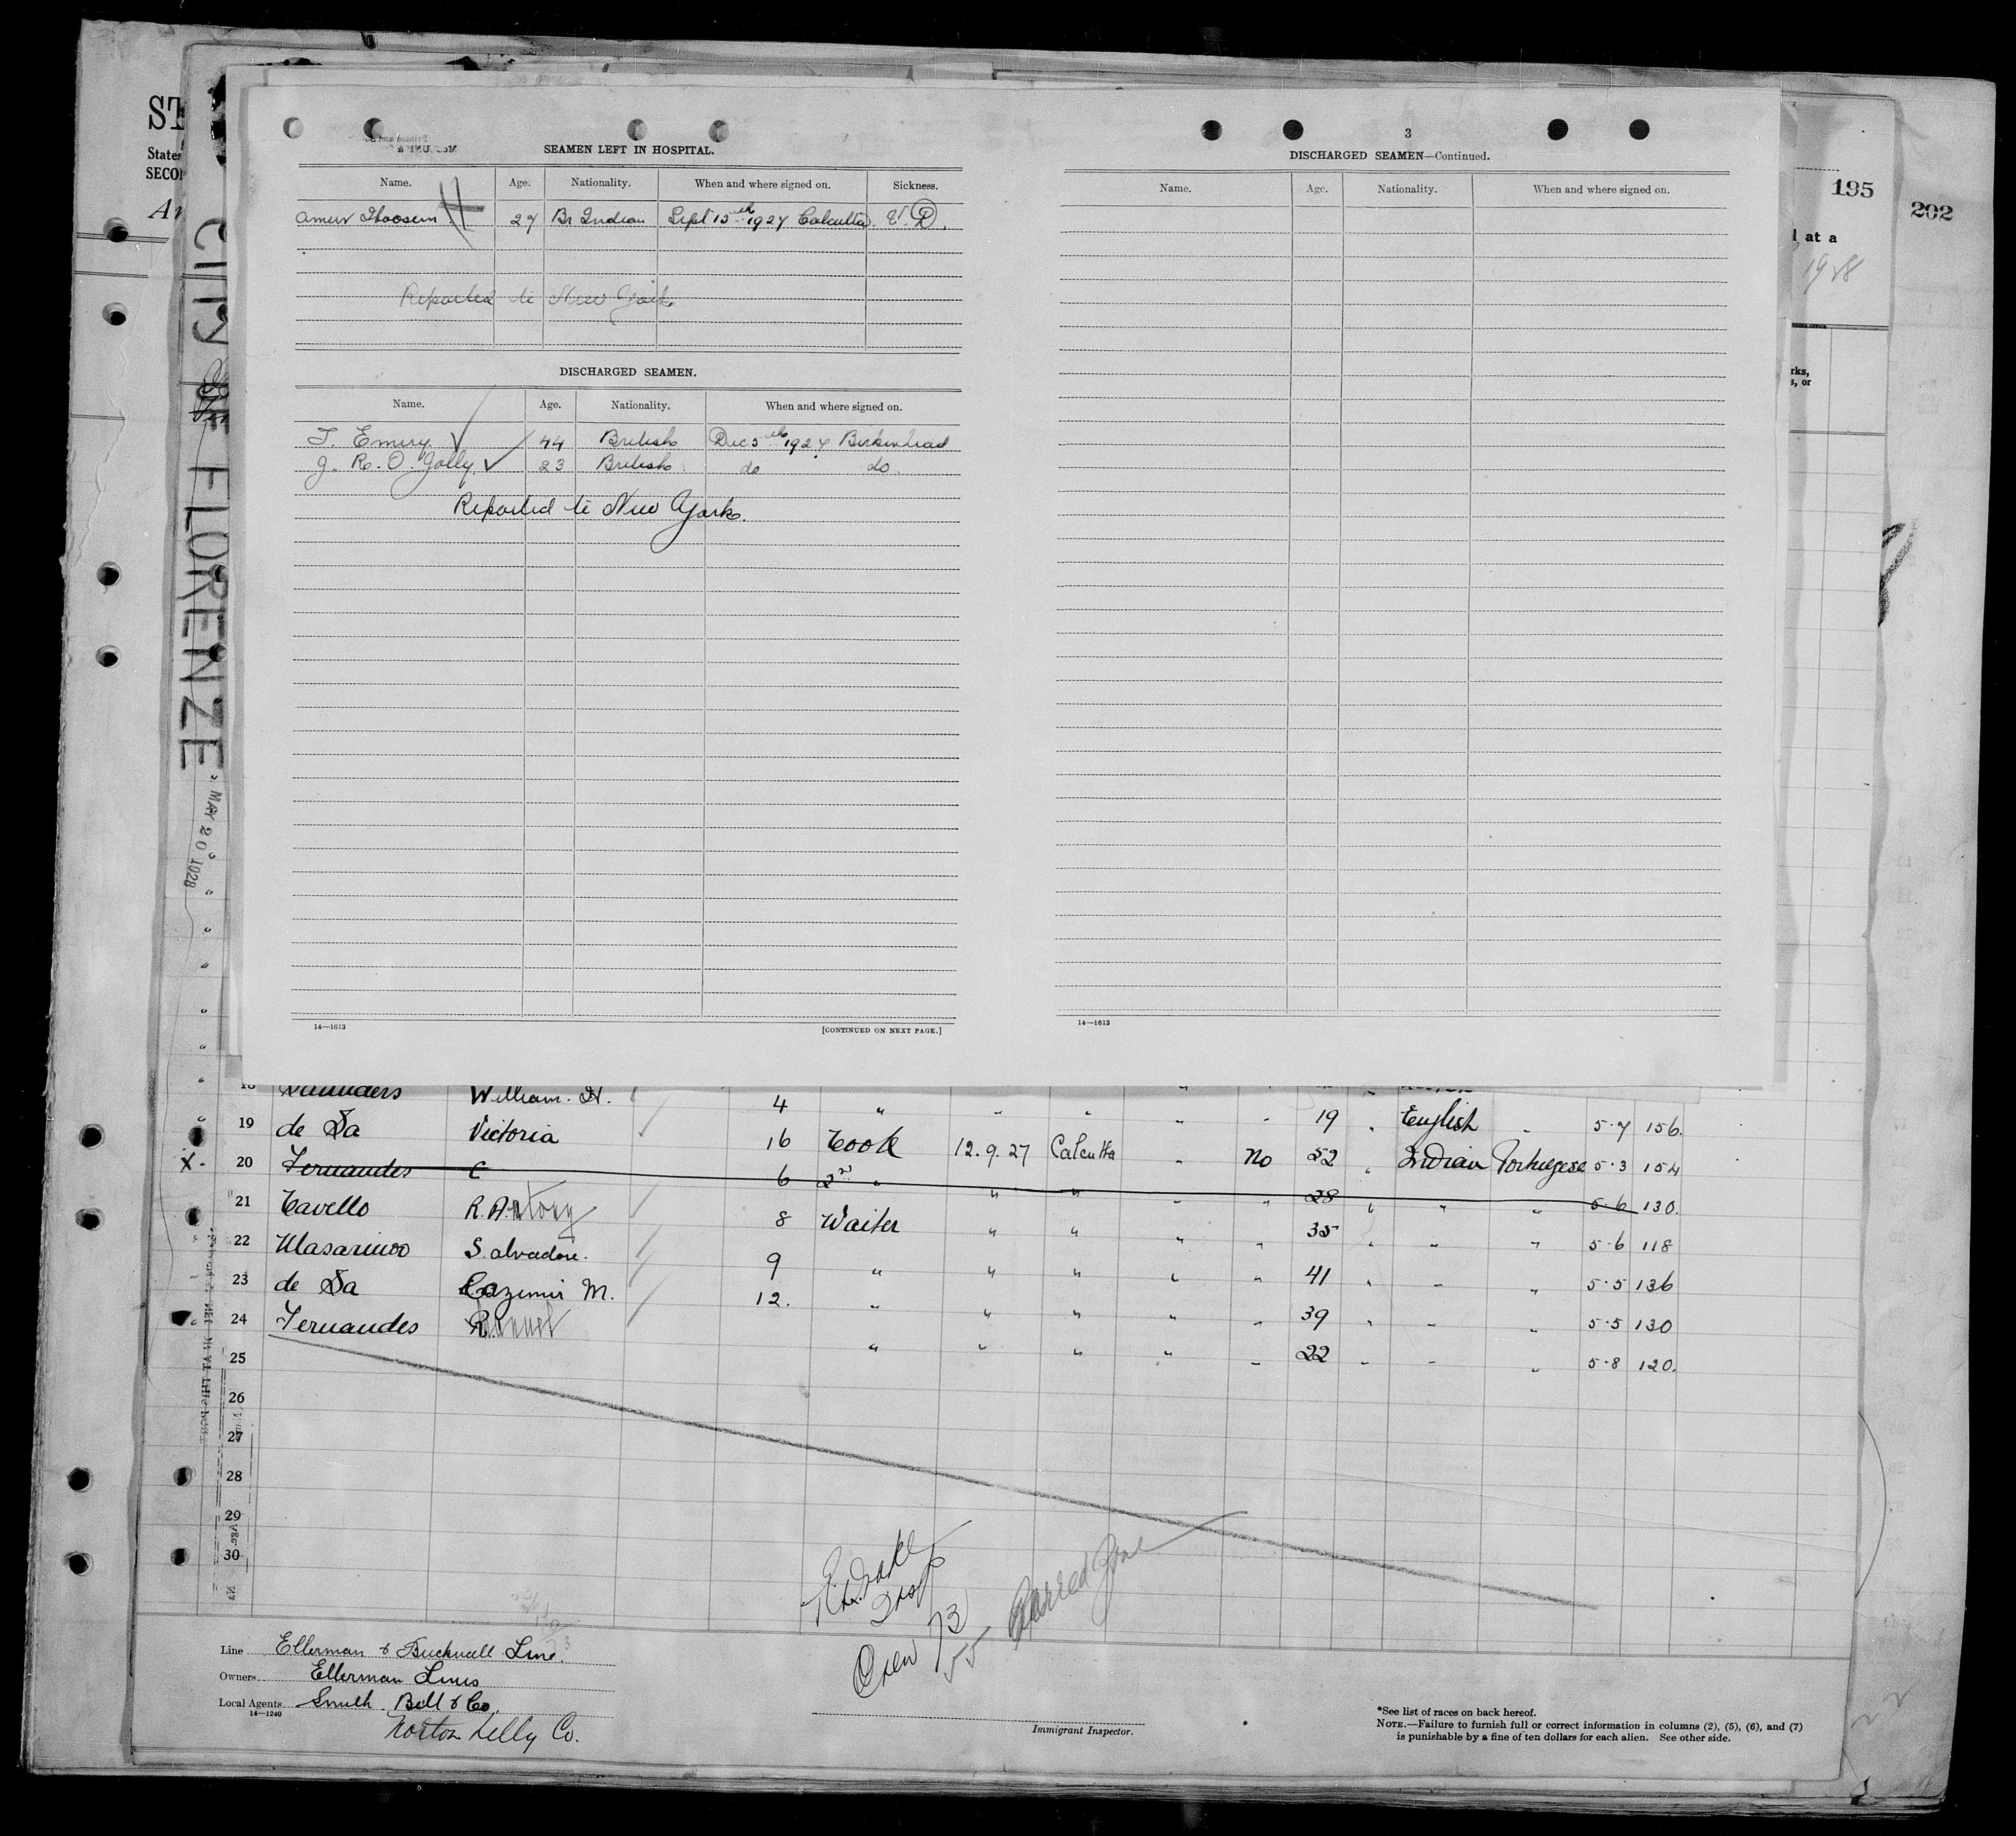 195
202
ST
States
SECON
l at a
1928
rks,
s, or
CITY OF FLORENZE
MAY 20 1928
SEAMEN LEFT IN HOSPITAL.
Name. Age. Nationality. When and where signed on. Sickness.
Ameer Hoosein 27 Br Indian Sept 15th 1927 Calcutta. V.D.
Reported to New York
DISCHARGED SEAMEN.
Name. Age. Nationality. When and where signed on.
T. Emery 44 British Dec 5th 1927 Birkenhead
J. R. O. Jolly 23 British do do
Reported to New York.
14—1613 [CONTINUED ON NEXT PAGE.]
3
DISCHARGED SEAMEN—Continued.
Name. Age. Nationality. When and where signed on.
14—1613
18 Saunders William. H. 4 " " " " " 19 " English " 5.7 156.
19 de Sa Victoria 16 Cook 12.9.27 Calcutta " No 52 " Indian Portugese 5.3 154
X. 20 Fernandes C 6 2nd " " " " " 28 " " " 5.6 130.
21 Cavello R. Antony 8 Waiter " " " " 35 " " " 5.6 118
22 Masarinoo Salvadore. 9 " " " " " 41 " " " 5.5 136
23 de Sa Cazimir M. 12. " " " " " 39 " " " 5.5 130
24 Fernandes R. " " " " " 22 " " " 5.8 120.
25
26
27
28
29
30
Crew 73
55
Line Ellerman & Bucknall Line.
Owners Ellerman Lines
Local Agents Smith. Bell & Co.
14—1240
Norton Lilly Co.
Immigrant Inspector.
*See list of races on back hereof.
NOTE.—Failure to furnish full or correct information in columns (2), (5), (6), and (7)
is punishable by a fine of ten dollars for each alien. See other side.